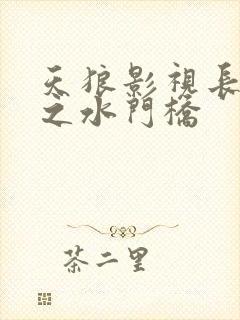 天狼影視長
之水門橋
茶二里